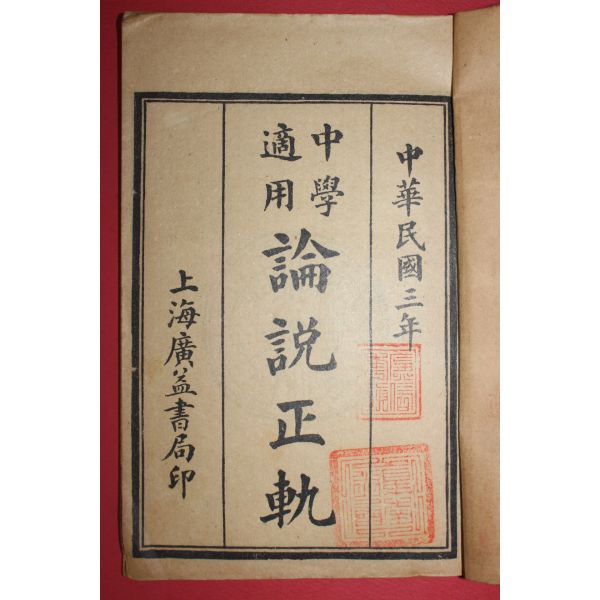 中華民國三年
中學
適用
論說正軌
上海廣益書局印